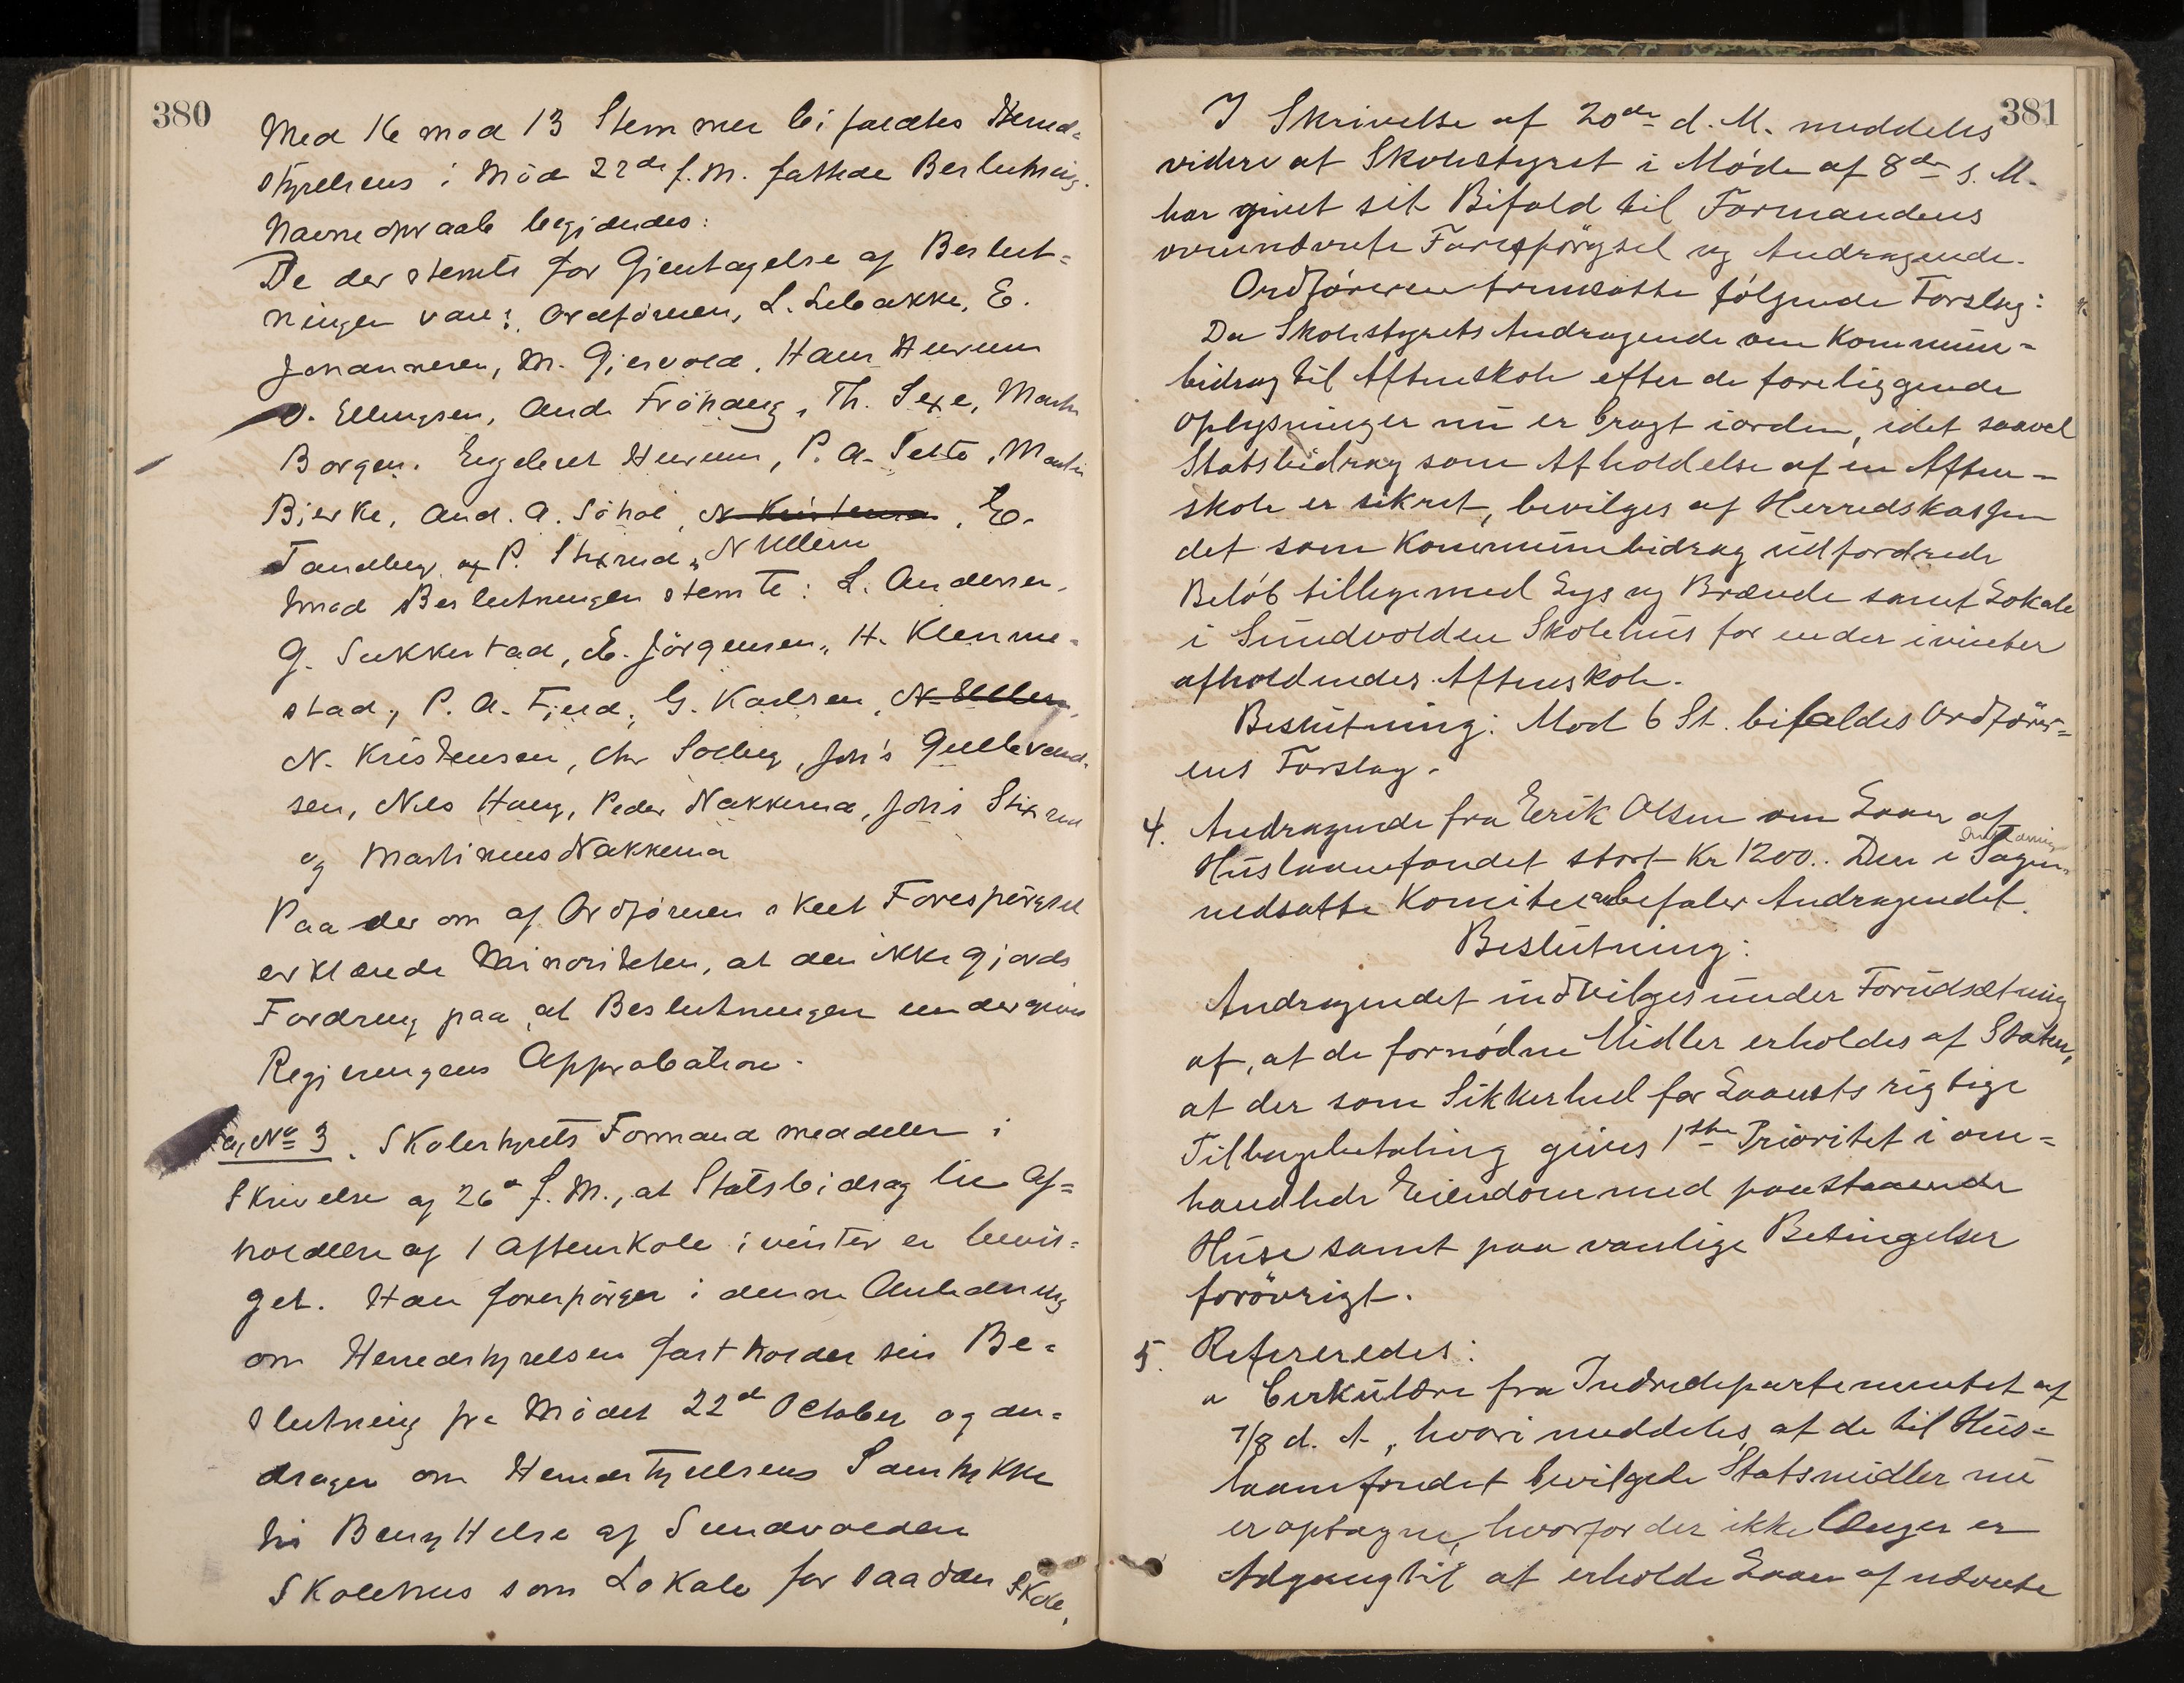 380
Med 16 mod 13 Stemmer bifaldtes Herred-
styrelsens i Möde 22de f.M. fattede Beslutning.
Navneopraab begjeredes:
De der stemte for Gjentagelse af Beslut-
ningen vare: Ordföreren, L. Lebakke, E.
Johannesen, M. Gjesvold, Hans Hurum
O. Ellingsen, And. Fröhaug, Th. Sexe, Martin
Borgen, Engebret Hurum, P. A. Sette, Martin
Bjerke, And. A. Söhol, N. Kristensen, E.
Tandberg og P. Stixrud, N Ullern
Imod Beslutningen stemte: L. Andersen,
G. Sukkestad, E. Jörgensen, H. Klemme-
stad, P. A. Fjeld, G. Karlsen, N. Ullern,
N. Kristensen, Chr Solberg, Joh's Gulbrand-
sen, Nils Haug, Peder Nakkerud, Joh's Stixrud
og Martinius Nakkerud
Paa derom af Ordföreren skeet Forespörgsel
erklærede Minoriteten, at den ikke gjorde
Fordring paa, at Beslutningen undergives
Regjeringens Approbation.
Sag No 3. Skolestyrets Formand meddeler i
Skrivelse af 26de f. M., at Statsbidrag til Af-
holdelse af 1 Aftenskole ivinter er bevil-
get. Han forespörger i denne Anledning
om Herredstyrelsen fastholder sin Be-
slutning fra Mödet 22de October og an-
drager om Herredstyrelsens Samtykke
til Benyttelse af Sundvolden
Skolehus som Lokale for saadan Skole.
381
I Skrivelse af 20de d. M. meddeles
videre at Skolestyret i Möde af 8de s. M.
har givet sit Bifald til Formandens
ovennævnte Forespörgsel og Andragende.
Ordföreren fremsatte følgende Forslag:
Da Skolestyrets Andragende om Kommune-
bidrag til Aftenskole efter de foreliggende
Oplysninger nu er bragt iorden, idet saavel
Statsbidrag som Afholdelse af en Aften-
skole er sikret, bevilges af Herredskassen
det som Kommunebidrag udfordrede
Belöb tilligemed Lys og Brænde samt Lokale
i Sundvolden Skolehus for en der ivinter
afholdendes Aftenskole.
Beslutning: Mod 6 St. bifaldes Ordförer-
ens Forslag.
4. Andragende fra Erik Olsen om Laan af
Huslaanefondet stort Kr 1200.. Den i Sagens
nedsatte Komite anbefaler Andragendet.
Beslutning:
Andragendet indvilges under Forudsætning
af, at de fornödne Midler erholdes af Staten,
at der som Sikkerhed for Laanets rigtige
Tilbagebetaling gives 1ste Prioritet i om-
handlede Eiendom med paastaaende
Huse samt paa vanlige Betingelser
forövrigt.
5. Refereredes:
a Cirkulære fra Indredepartementet af
7/8 d. A., hvori meddeles, at de til Hus-
laanefondet bevilgede Statsmidler nu
er optagne, hvorfor der ikke længer er
Adgang til at erholde Laan af nævnte